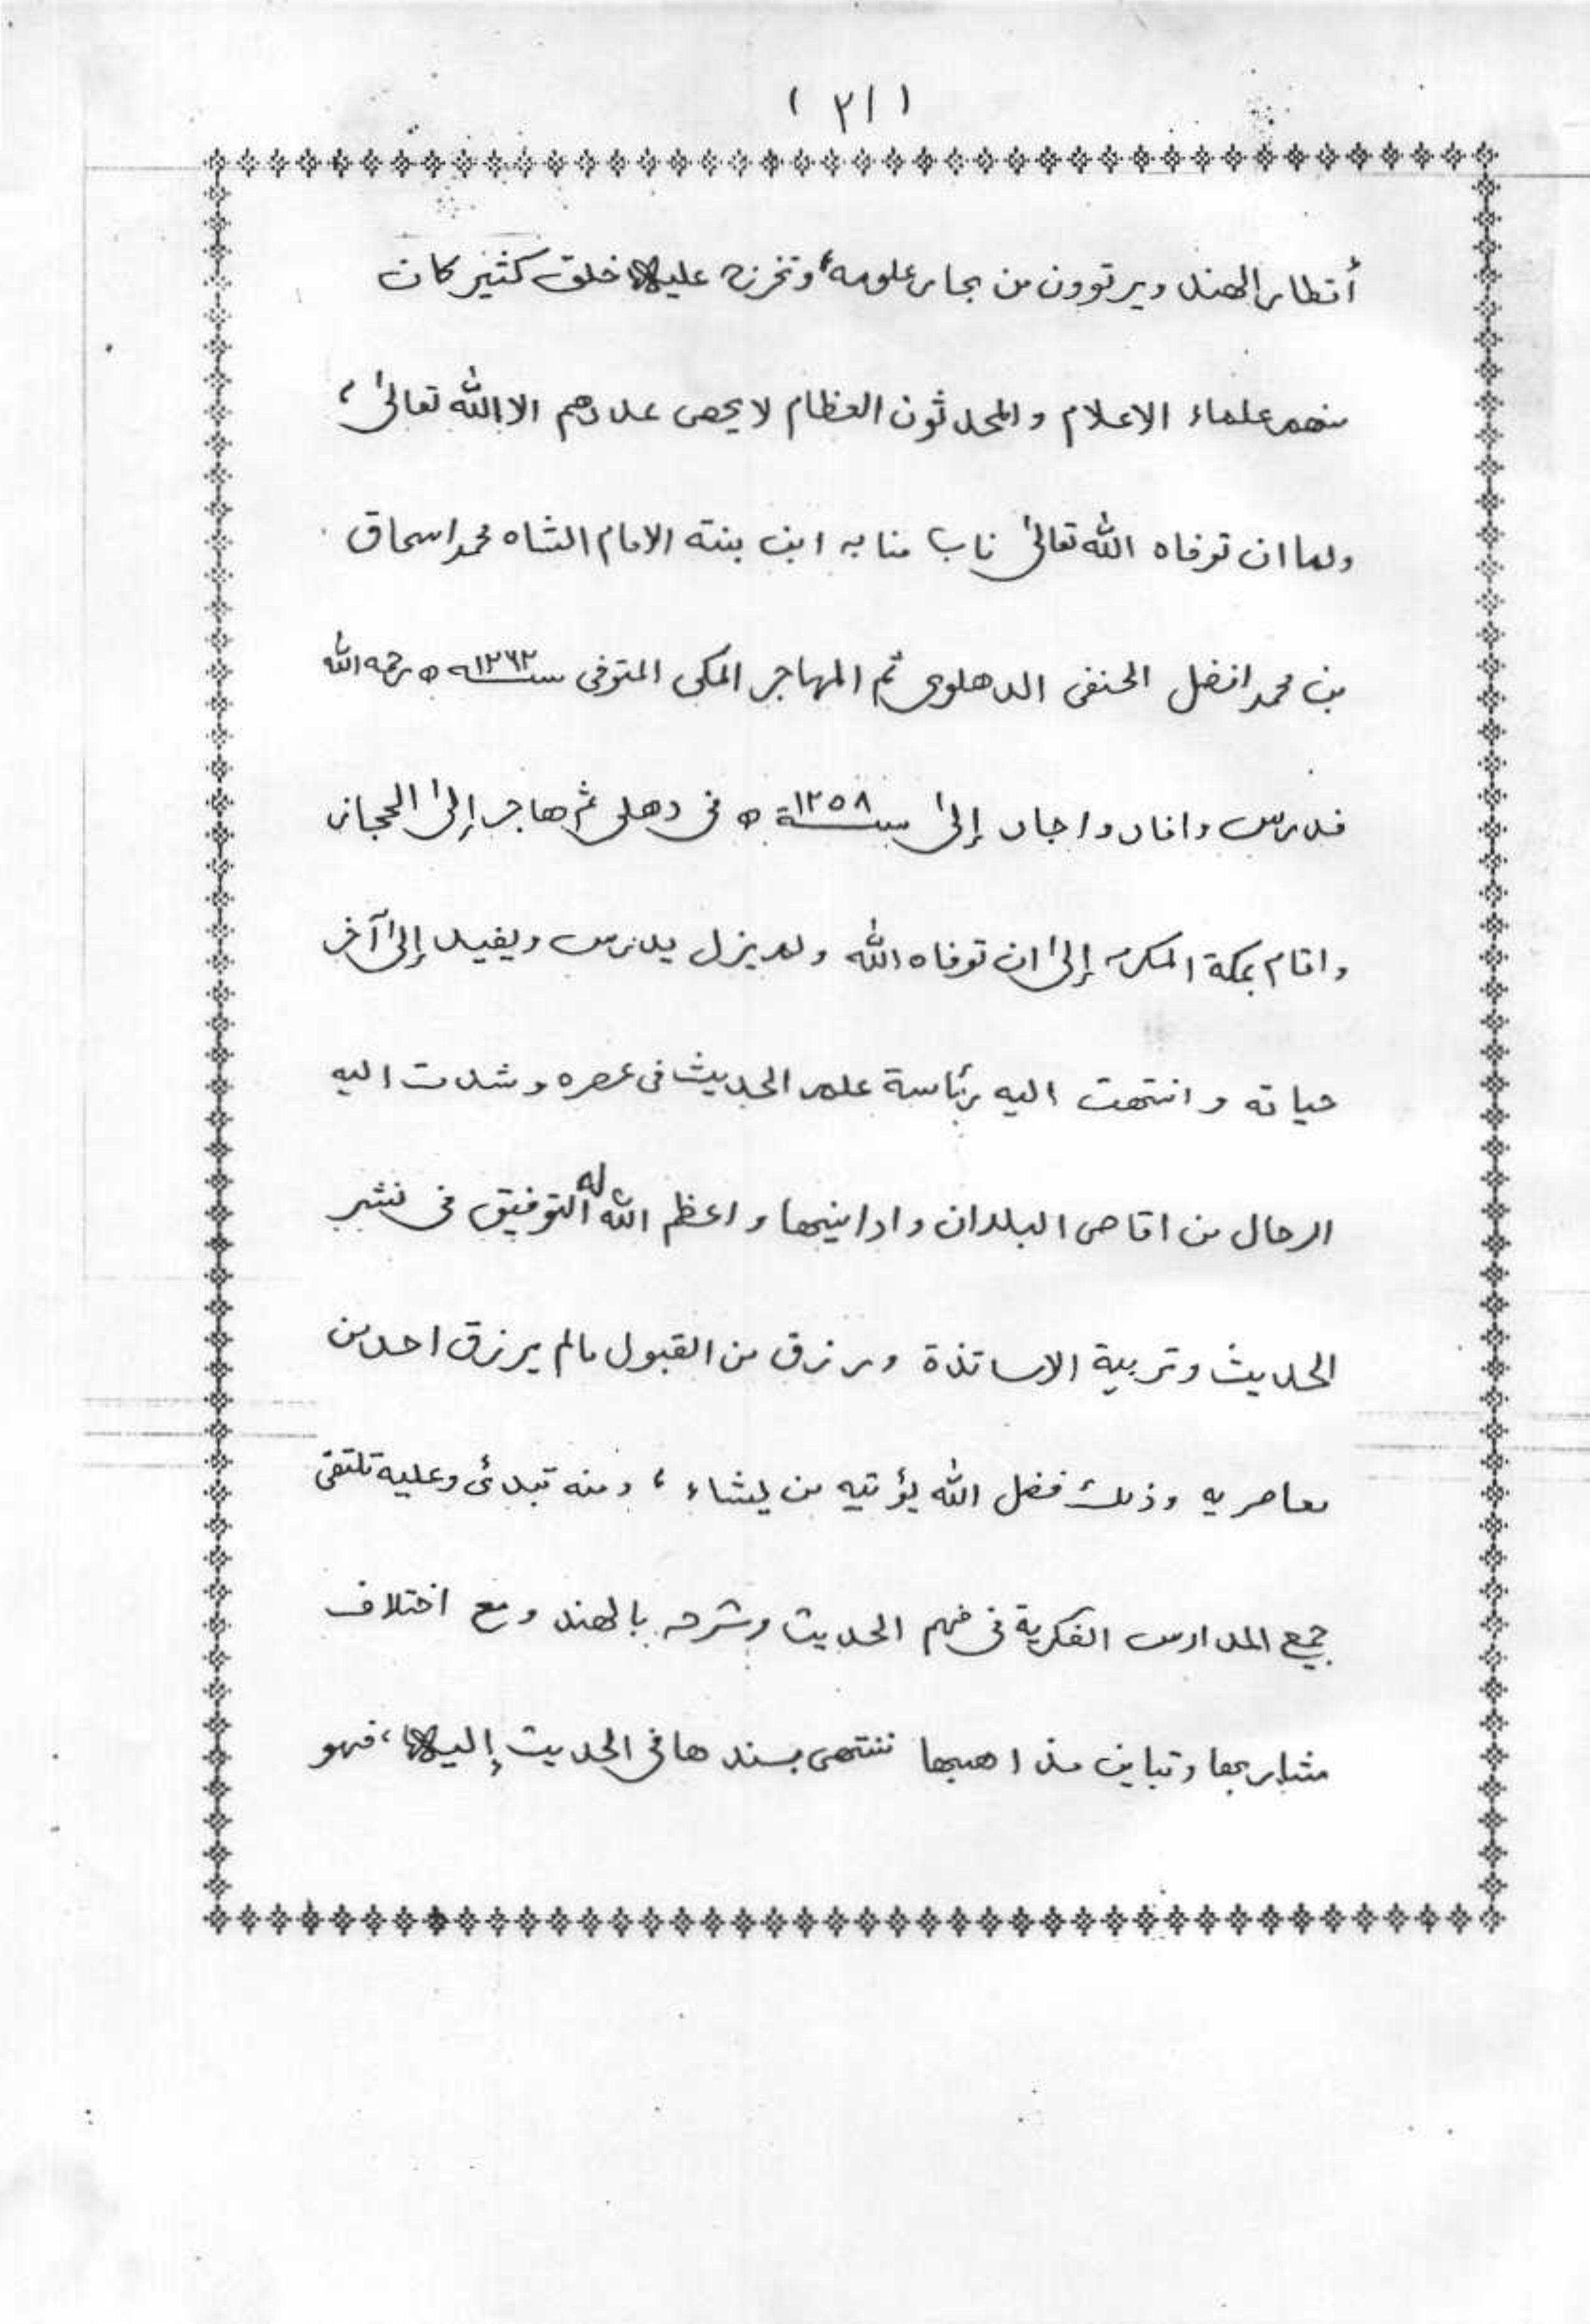 (٢١)
أقطار الهند ويرتوون من بحار علومه، وتخرج عليه خلق كثير كان
منهم علماء الاعلام والمحدثون العظام لا يحصى عددهم الا الله تعالىٰ،
ولما ان توفاه الله تعالىٰ ناب منابه ابن بنته الامام الشاه محمد اسحاق
بن محمد افضل الحنفى الدهلوى ثم المهاجر المكى المتوفى سنة ١٢٦٢ه رحمه الله
فدرس وافاد واجاد إلىٰ سنة ١٢٥٨ه فى دهلى ثم هاجر إلىٰ الحجاز
واقام بمكة المكرمه إلىٰ ان توفاه الله ولم يزل يدرس ويفيد إلىٰ آخر
حياته وانتهت اليه رئاسة علم الحديث فى عصره وشدت اليه
الرحال من اقاصى البلدان وادانيها واعظم الله له التوفيق فى نشر
الحديث وتربية الاساتذة ورزق من القبول مالم يرزق احد من
معاصريه وذلك فضل الله يؤتيه من يشاء، ومنه تبدئ وعليه تلتقى
جميع المدارس الفكرية فى فهم الحديث وشرحه بالهند ومع اختلاف
مشاربها وتباين مذاهبها تنتهى بسندها فى الحديث إليه، فهو